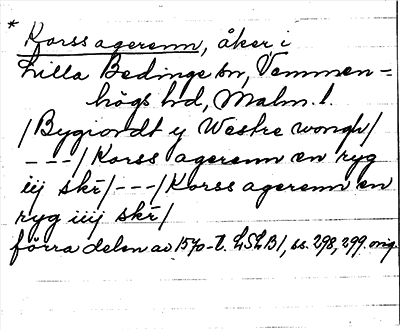 * Korss agerenn, åker i
Lilla Bedinge sn, Vemmen=
högs hd, Malm. l.
/Bygiordt y Westre wongh/
---/Korss agerenn en ryg
iiij skr̄/---/Korss agerenn en
ryg iiij skr̄/
förra delen av 1570-t. LSLB1, ss. 298, 299. orig.